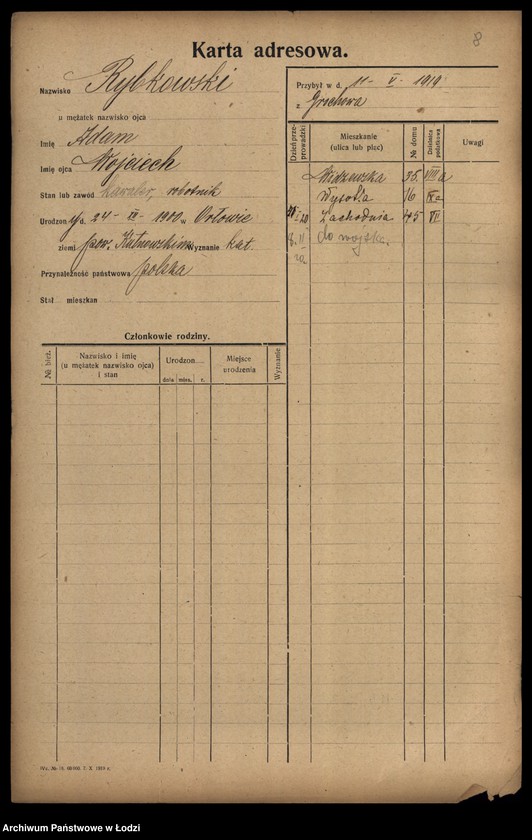 8
Karta adresowa.
Nazwisko Rybkowski
u mężatek nazwisko ojca
Imię Adam
Imię ojca Wojciech
Stan lub zawód kawaler, robotnik
Urodzon y d. 24 - XII - 1900 w Orłowie
ziemi pow. Kutnowskim Wyznanie kat.
Przynależność państwowa polska
Stał mieszkan
Przybył w d. 11 - V - 1919
z Grochowa
Dzień przeprowadzki
Mieszkanie (ulica lub plac)
№ domu
Dzielnica podatkowa
Uwagi
Widzewska 35 VIII a
Wysoka 16 IX a
20 Zachodnia 45 VI
8. II do wojska.
Członkowie rodziny.
№ bież.
Nazwisko i imię
(u mężatek nazwisko ojca)
i stan
Urodzon
dnia mies. r.
Miejsce urodzenia
Wyznanie
1919 r.
Archiwum Państwowe w Łodzi